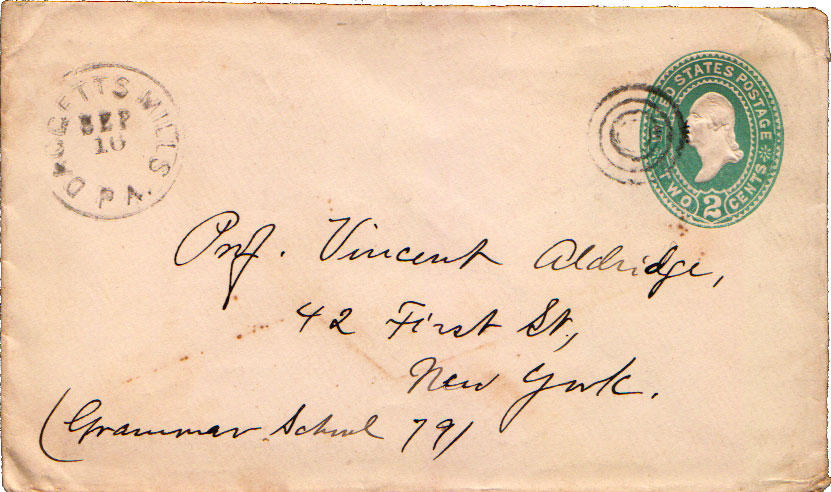 DAGGETTS MILLS
SEP
10
PA.
UNITED STATES POSTAGE
TWO 2 CENTS
Prof. Vincent Aldridge,
42 First St,
New York.
(Grammar School 79)